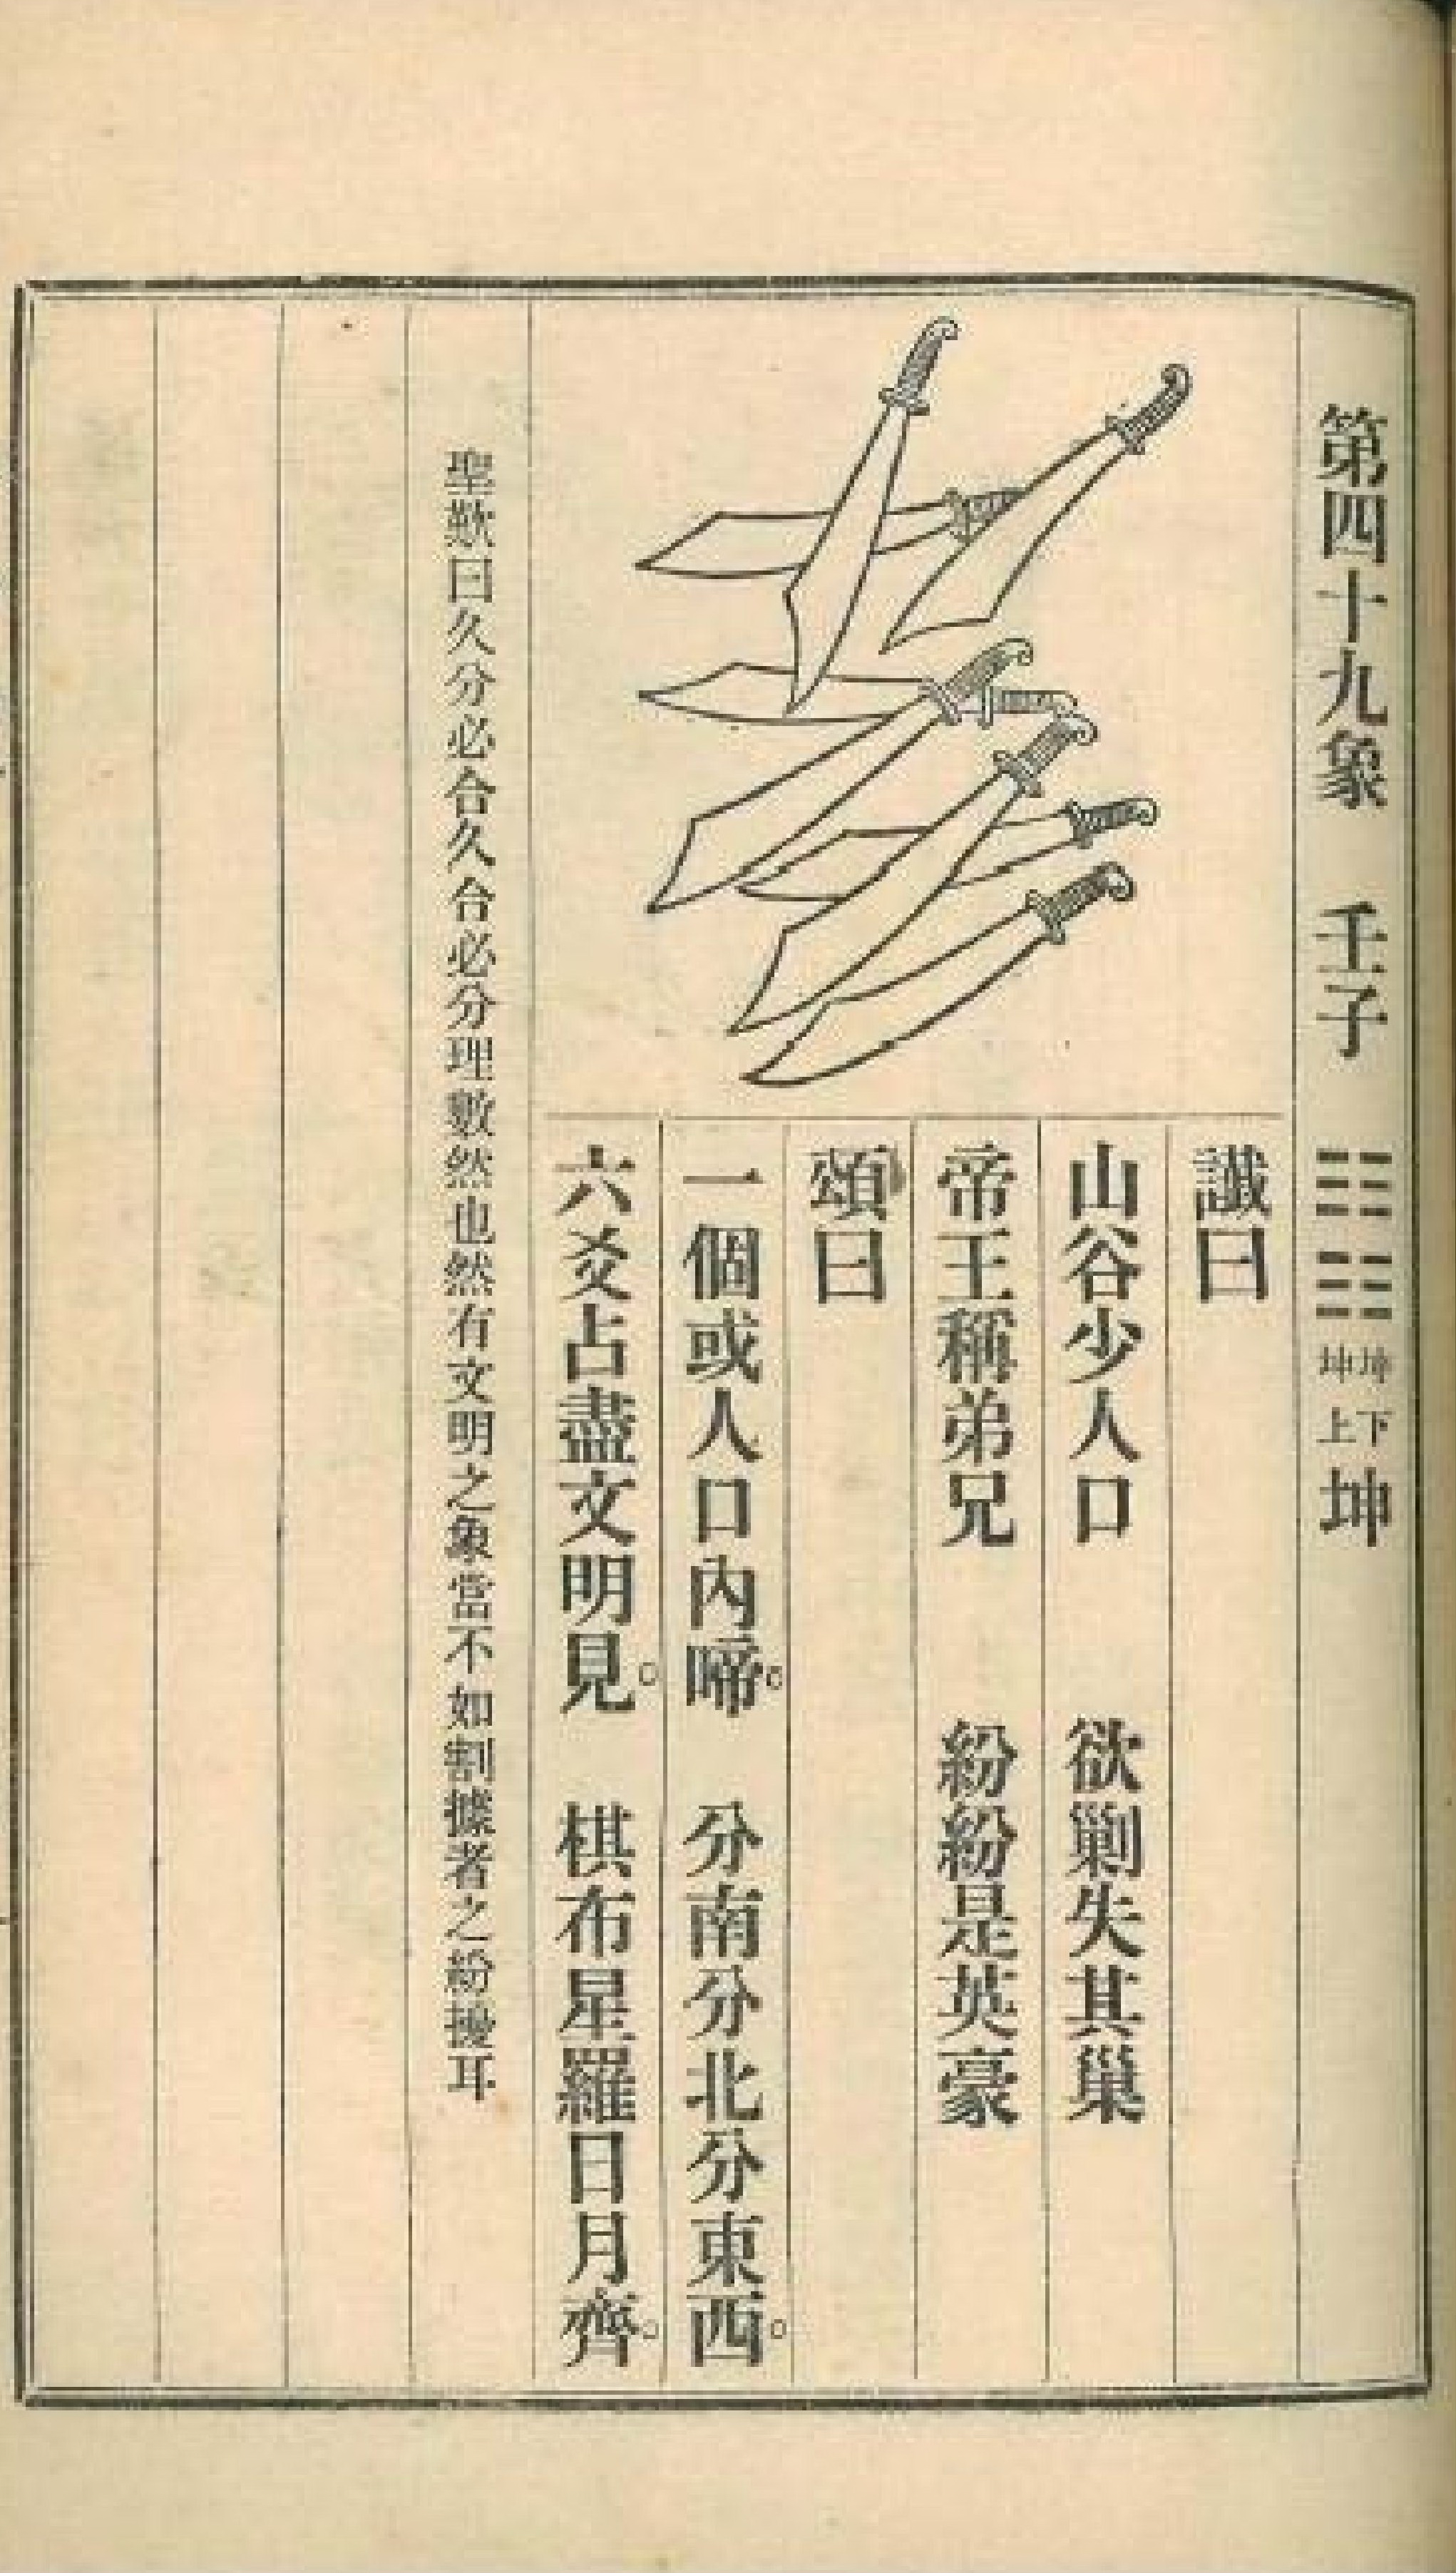 第四十九象 壬子 坤下坤上 坤
讖曰
山谷少人口 欲剿失其巢
帝王稱弟兄 紛紛是英豪
頌曰
一個或人口內啼。 分南分北分東西。
六爻占盡文明見。 棋布星羅日月齊。
聖歎曰久分必合久合必分理數然也然有文明之象當不如割據者之紛擾耳